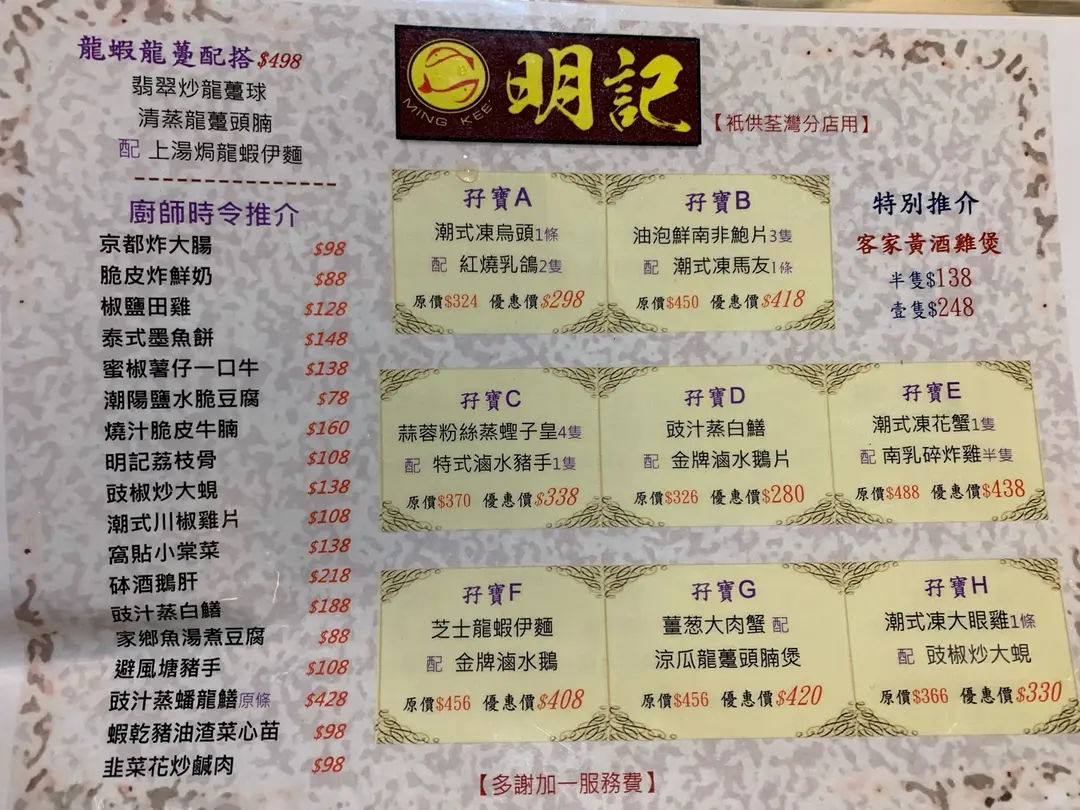 龍蝦龍躉配搭 $498
翡翠炒龍躉球
清蒸龍躉頭腩
配 上湯焗龍蝦伊麵
廚師時令推介
京都炸大腸 $98
脆皮炸鮮奶 $88
椒鹽田雞 $128
泰式墨魚餅 $148
蜜椒薯仔一口牛 $138
潮陽鹽水脆豆腐 $78
燒汁脆皮牛腩 $160
明記荔枝骨 $108
豉椒炒大蜆 $138
潮式川椒雞片 $108
窩貼小棠菜 $138
砵酒鵝肝 $218
豉汁蒸白鱔 $188
家鄉魚湯煮豆腐 $88
避風塘豬手 $108
豉汁蒸蟠龍鱔原條 $428
蝦乾豬油渣菜心苗 $98
韭菜花炒鹹肉 $98
MING KEE
明記
【祇供荃灣分店用】
孖寶A
潮式凍烏頭1條
配 紅燒乳鴿2隻
原價$324 優惠價$298
孖寶B
油泡鮮南非鮑片3隻
配 潮式凍馬友1條
原價$450 優惠價$418
特別推介
客家黃酒雞煲
半隻$138
壹隻$248
孖寶C
蒜蓉粉絲蒸蟶子皇4隻
配 特式滷水豬手1隻
原價$370 優惠價$338
孖寶D
豉汁蒸白鱔
配 金牌滷水鵝片
原價$326 優惠價$280
孖寶E
潮式凍花蟹1隻
配 南乳碎炸雞半隻
原價$488 優惠價$438
孖寶F
芝士龍蝦伊麵
配 金牌滷水鵝
原價$456 優惠價$408
孖寶G
薑葱大肉蟹 配
涼瓜龍躉頭腩煲
原價$456 優惠價$420
孖寶H
潮式凍大眼雞1條
配 豉椒炒大蜆
原價$366 優惠價$330
【多謝加一服務費】